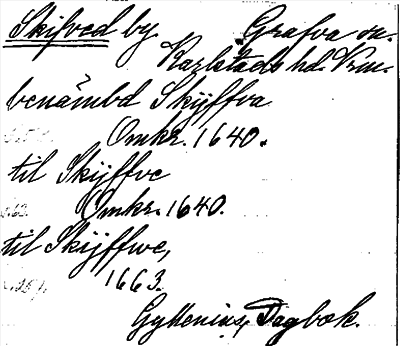 Skifved by. Grafva sn.
Karlstads hd. Vrm.
benämbd Skijffva
Omkr. 1640.
til Skijffve
Omkr. 1640.
til Skijffwe,
1663.
Gyllenius, Dagbok.